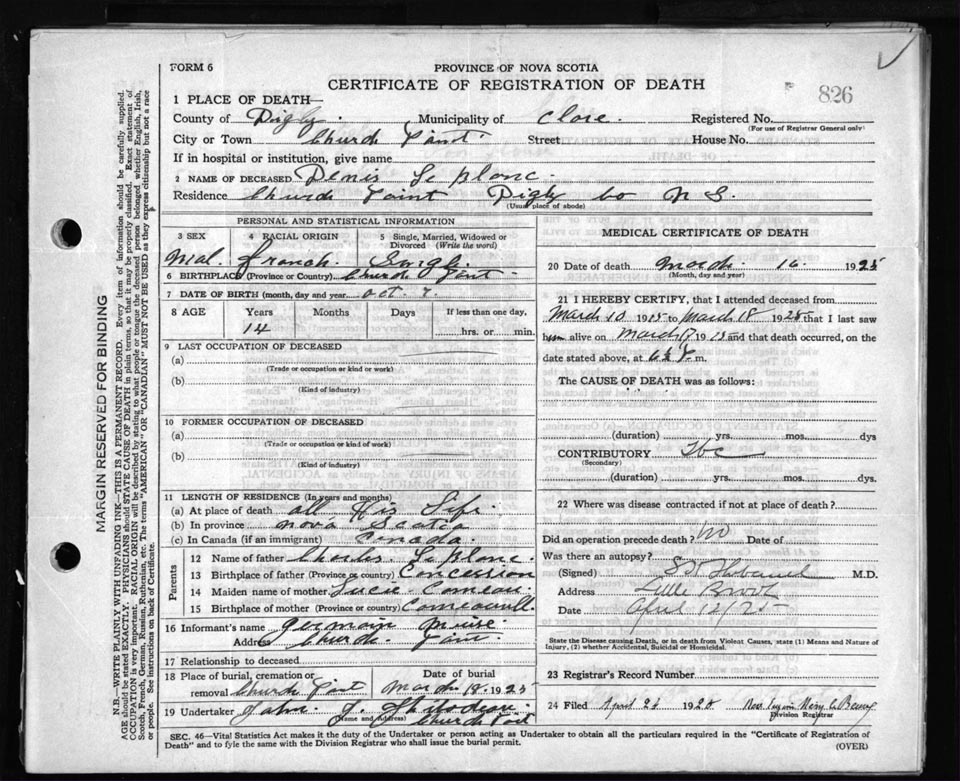 FORM 6
PROVINCE OF NOVA SCOTIA
CERTIFICATE OF REGISTRATION OF DEATH
826
1 PLACE OF DEATH—
County of Digby. Municipality of Clare. Registered No.
(For use of Registrar General only)
City or Town Church Point Street House No.
If in hospital or institution, give name
2 NAME OF DECEASED Denis Le Blanc.
Residence Church Point Digby Co N S.
(Usual place of abode)
PERSONAL AND STATISTICAL INFORMATION
3 SEX 4 RACIAL ORIGIN 5 Single, Married, Widowed or Divorced (Write the word)
Mal. French. Singl.
6 BIRTHPLACE (Province or Country) Church Point
7 DATE OF BIRTH (month, day and year Oct. 7.
8 AGE Years Months Days If less than one day,
14 hrs. or min.
9 LAST OCCUPATION OF DECEASED
(a)
(Trade or occupation or kind or work)
(b)
(Kind of industry)
10 FORMER OCCUPATION OF DECEASED
(a)
(Trade or occupation or kind or work)
(b)
(Kind of industry)
11 LENGTH OF RESIDENCE (In years and months)
(a) At place of death all His Life.
(b) In province Nova Scotia
(c) In Canada (if an immigrant) Canada.
Parents
12 Name of father Charles Le Blanc.
13 Birthplace of father (Province or country) Concession
14 Maiden name of mother Lucie Comeau
15 Birthplace of mother (Province or country) Comeauvill.
16 Informant's name Germain Meuse.
Address Church Point.
17 Relationship to deceased
18 Place of burial, cremation or removal Church Point
Date of burial March 18. 1925
19 Undertaker John J. Thibodeau.
(Name and Address) Church Point
MEDICAL CERTIFICATE OF DEATH
20 Date of death March. 16. 1925
(Month, day and year)
21 I HEREBY CERTIFY, that I attended deceased from
March 10 1925 to March 18 1925 that I last saw
him alive on March 17 1925 and that death occurred, on the
date stated above, at m.
The CAUSE OF DEATH was as follows:
(duration) yrs. mos. dys
CONTRIBUTORY Tbc
(Secondary)
(duration) yrs. mos. dys.
22 Where was disease contracted if not at place of death?
Did an operation precede death? No Date of
Was there an autopsy?
(Signed) M.D.
Address Brook
Date April 12/25
State the Disease causing Death, or in death from Violent Causes, state (1) Means and Nature of
Injury, (2) whether Accidental, Suicidal or Homicidal.
23 Registrar's Record Number
24 Filed April 24 1925
Division Registrar
SEC. 46—Vital Statistics Act makes it the duty of the Undertaker or person acting as Undertaker to obtain all the particulars required in the "Certificate of Registration of
Death" and to fyle the same with the Division Registrar who shall issue the burial permit.
(OVER)
MARGIN RESERVED FOR BINDING
N.B.—WRITE PLAINLY WITH UNFADING INK—THIS IS A PERMANENT RECORD. Every item of information should be carefully supplied.
AGE should be stated EXACTLY. PHYSICIANS should STATE CAUSE OF DEATH in plain terms, so that it may be properly classified. Exact statement of
OCCUPATION is very important. RACIAL ORIGIN will be described by stating to what people or tongue the deceased person belonged, whether English, Irish,
Scotch, French, German, Russian, Ruthenian, etc. The terms "AMERICAN" OR "CANADIAN" MUST NOT BE USED as they express citizenship but not a race
or people. See instructions on back of Certificate.